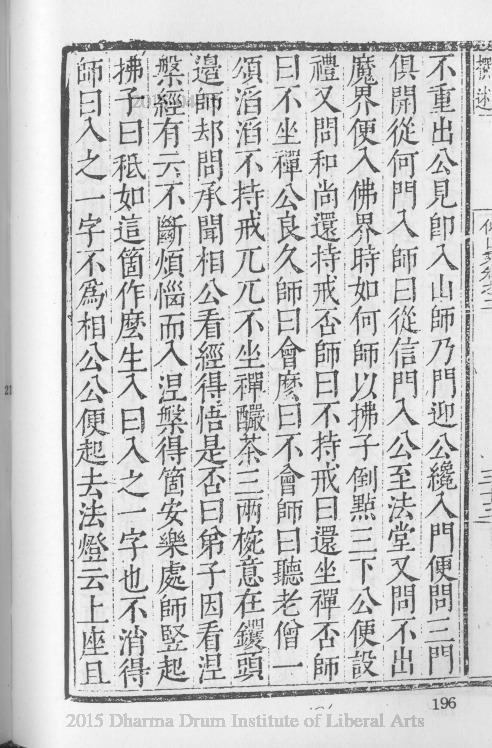 不重出公見即入山師乃門迎公纔入門便問三門
俱開從何門入師曰從信門入公至法堂又問不出
魔界便入佛界時如何師以拂子倒點三下公便設
禮又問和尚還持戒否師曰不持戒曰還坐禪否師
曰不坐禪公良久師曰會麼曰不會師曰聽老僧一
頌滔滔不持戒兀兀不坐禪釅茶三兩椀意在钁頭
邊師却問承聞相公看經得悟是否曰弟子因看涅
槃經有云不斷煩惱而入涅槃得箇安樂處師豎起
拂子曰秖如這箇作麼生入曰入之一字也不消得
師曰入之一字不為相公公便起去法燈云上座且
196
2015 Dharma Drum Institute of Liberal Arts